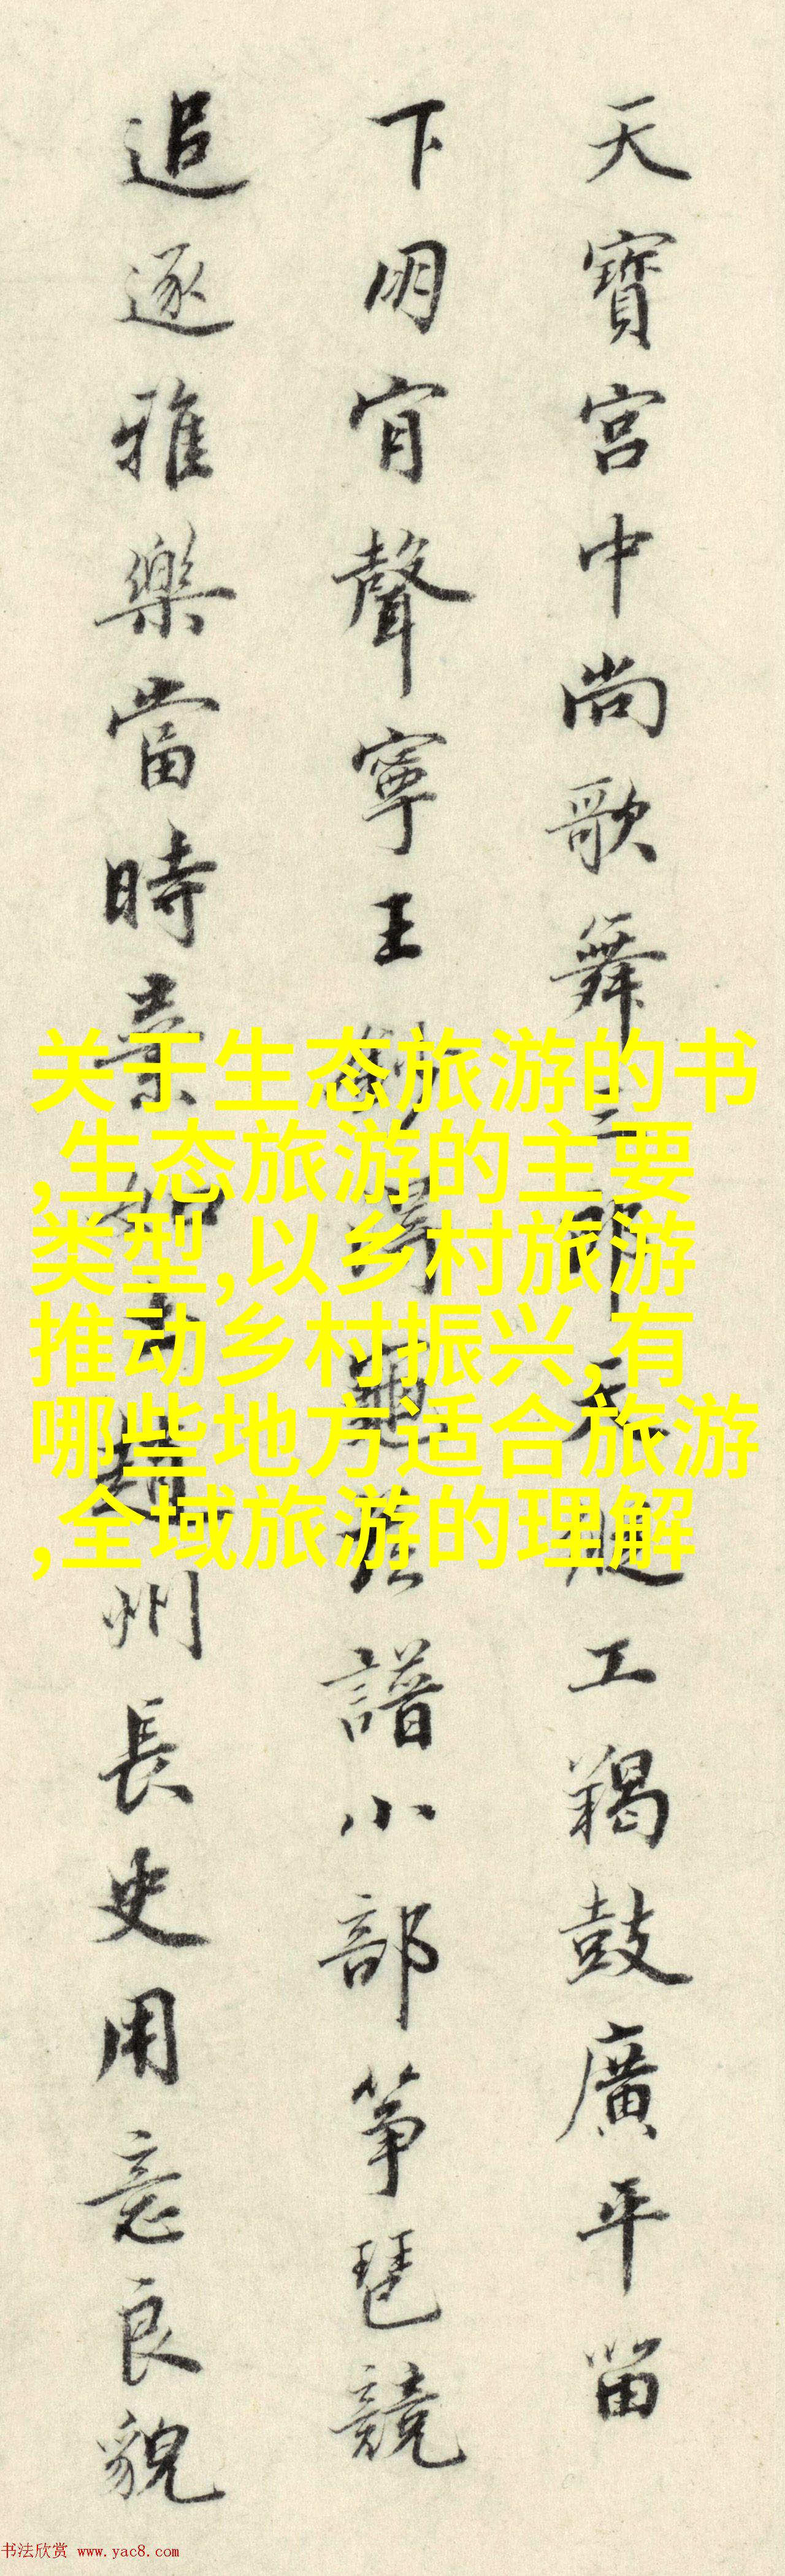 天寶宮中尚歌舞二郎天工羯鼓廣平留
下明宵聲寧王譜小部箏琶競
追逐雅樂當時棄州長史用意良貌
关于生态旅游的书
,生态旅游的主要
类型,以乡村旅游
推动乡村振兴,有
哪些地方适合旅游
,全域旅游的理解
书法欣赏 www.yac8.com